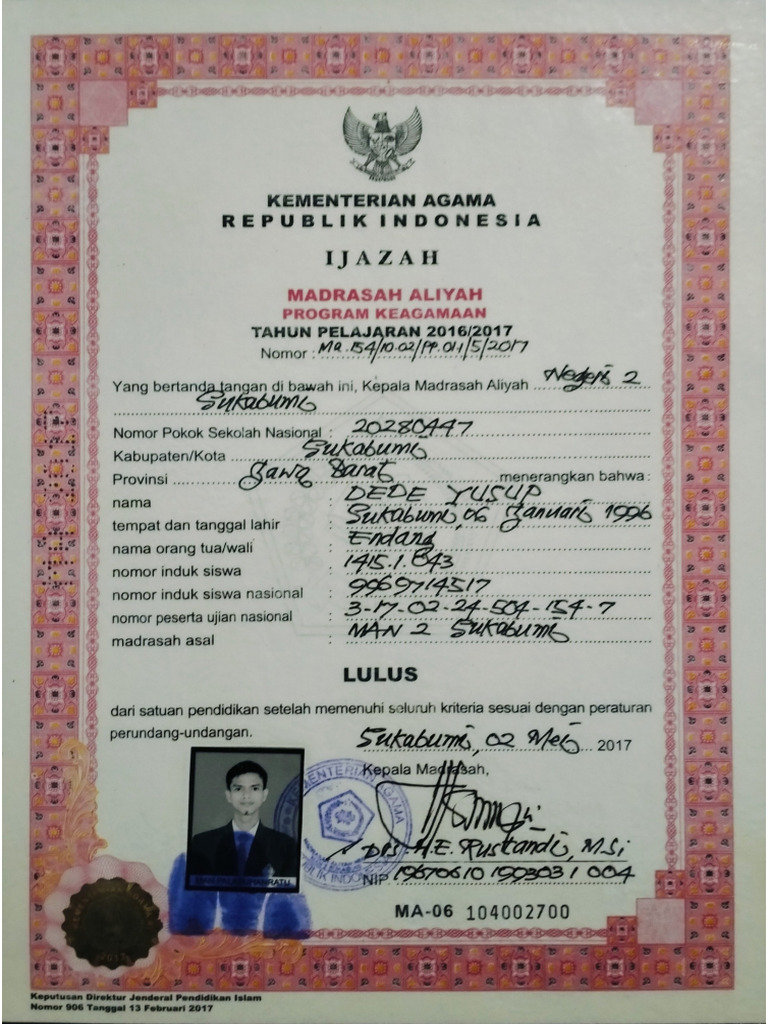 KEMENTERIAN AGAMA
REPUBLIK INDONESIA
IJAZAH
MADRASAH ALIYAH
PROGRAM KEAGAMAAN
TAHUN PELAJARAN 2016/2017
Nomor : Ma.154/10.02/PP.01.1/5/2017
Yang bertanda tangan di bawah ini, Kepala Madrasah Aliyah Negeri 2
Sukabumi
Nomor Pokok Sekolah Nasional : 20280447
Kabupaten/Kota Sukabumi
Provinsi Jawa Barat menerangkan bahwa :
nama : DEDE YUSUP
tempat dan tanggal lahir : Sukabumi, 06 Januari 1996
nama orang tua/wali : Endang
nomor induk siswa : 1415.1.843
nomor induk siswa nasional : 9969714517
nomor peserta ujian nasional : 3-17-02-24-504-154-7
madrasah asal : MAN 2 Sukabumi
LULUS
dari satuan pendidikan setelah memenuhi seluruh kriteria sesuai dengan peraturan
perundang-undangan.
Sukabumi, 02 Mei 2017
Kepala Madrasah,
Drs. H.E. Rustandi, M.Si
NIP 19670610 199303 1 004
MA-06 104002700
KEMENTERIAN AGAMA
2017
Keputusan Direktur Jenderal Pendidikan Islam
Nomor 906 Tanggal 13 Februari 2017